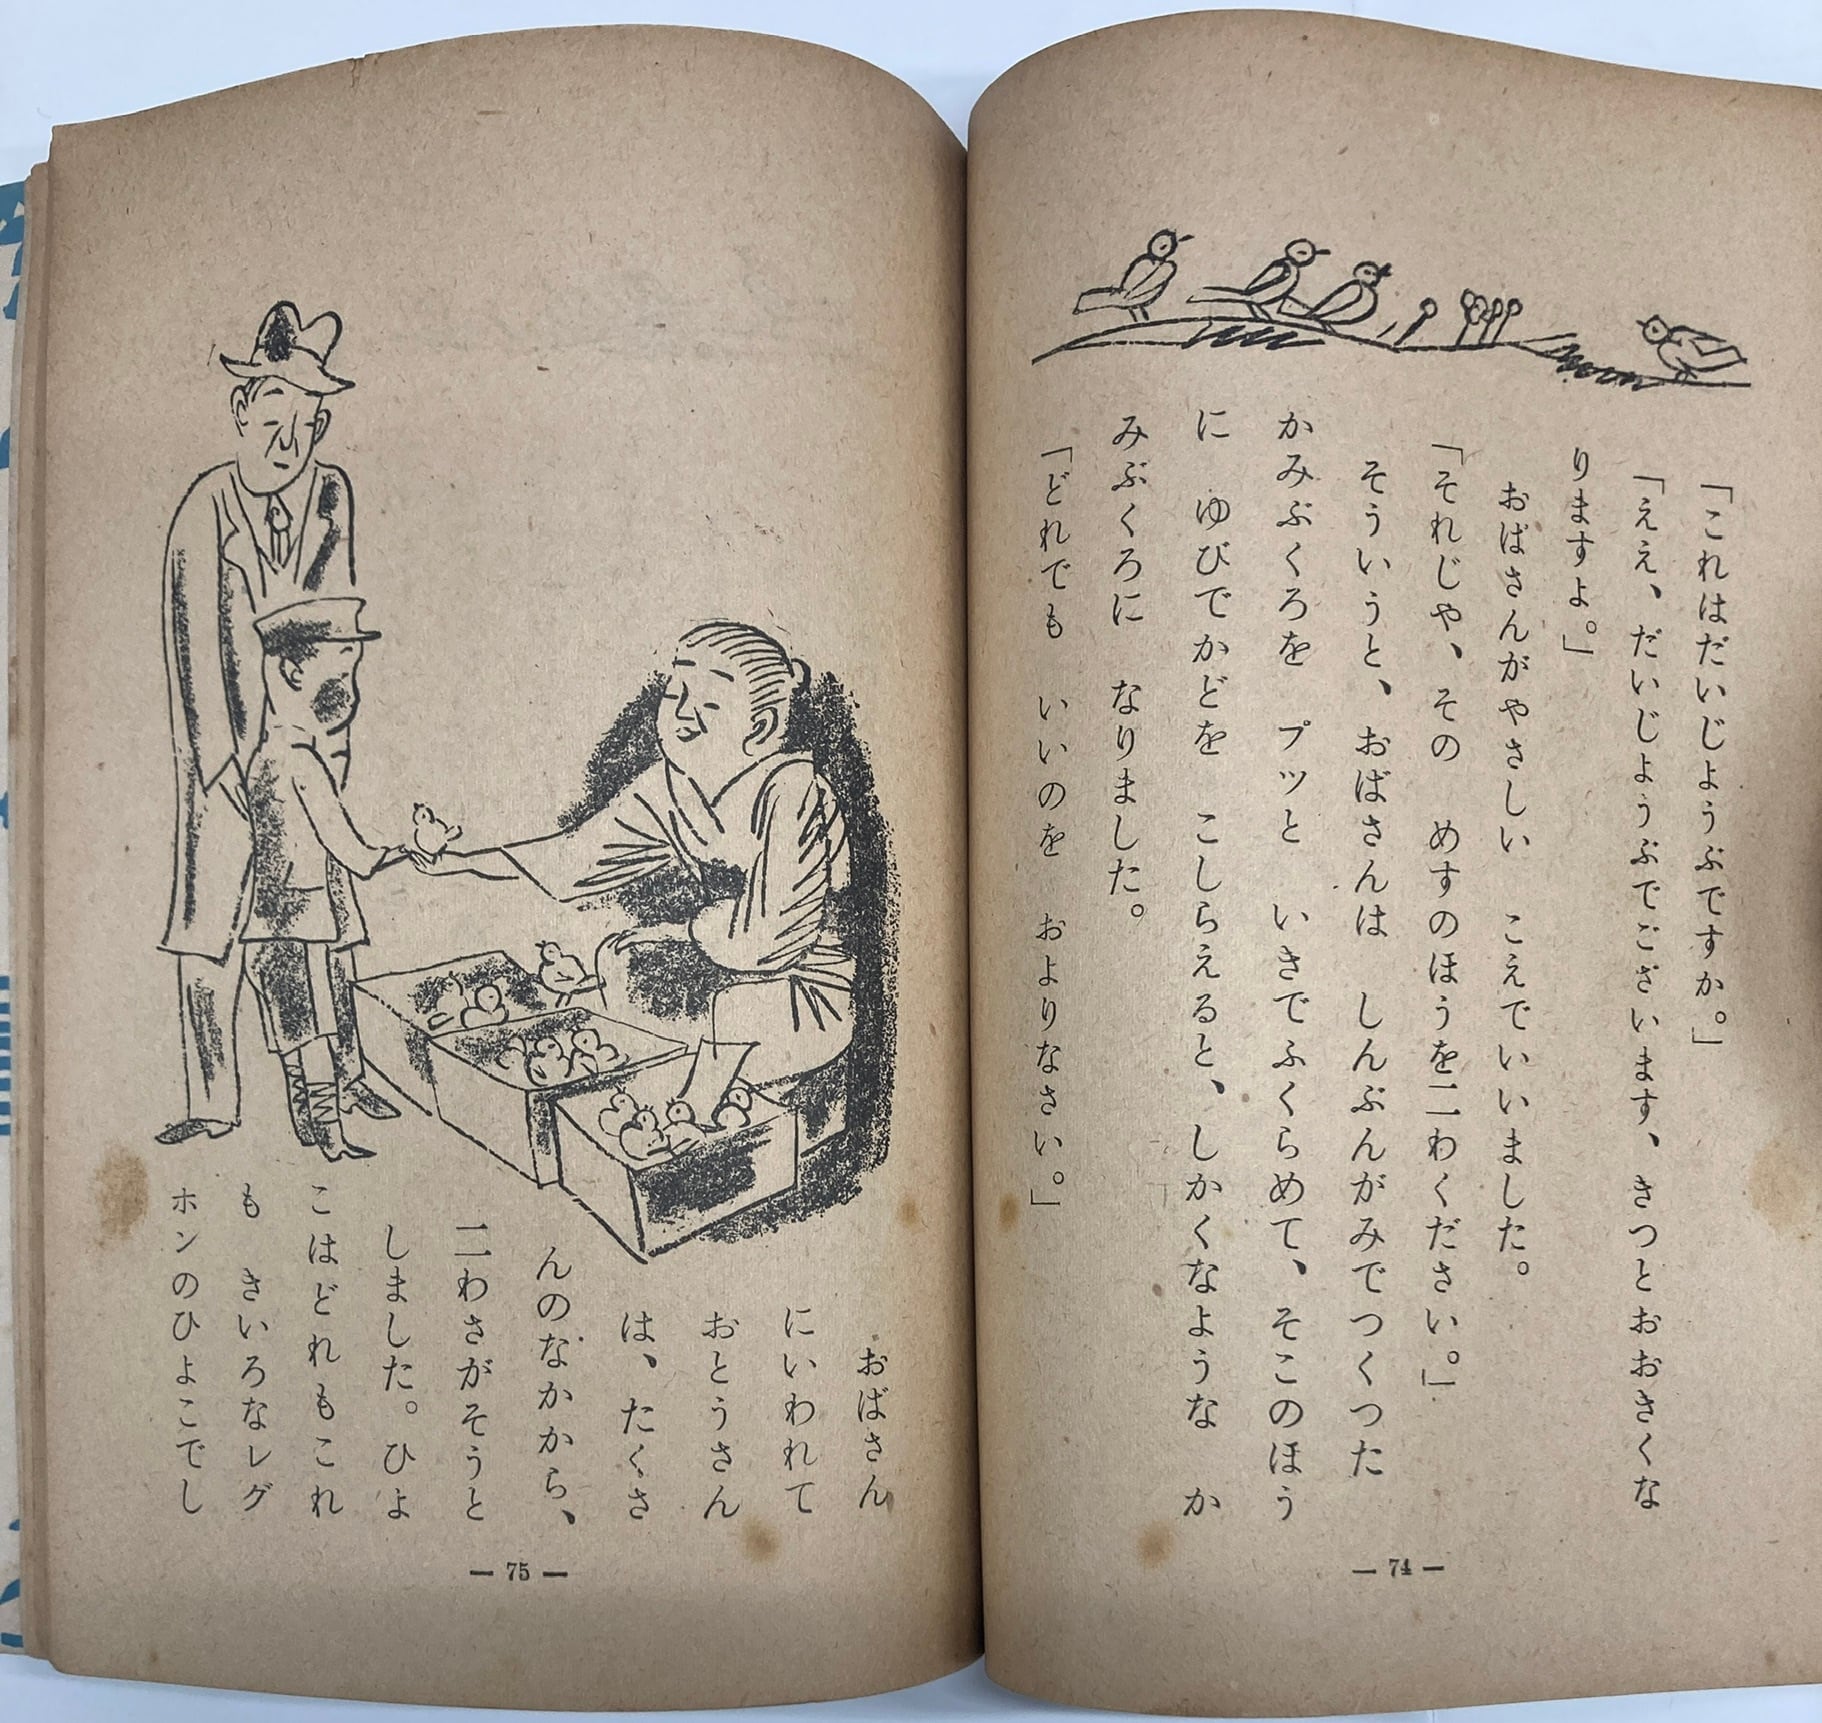 「これはだいじようぶですか。」
「ええ、だいじようぶでございます、きつとおおきくな
りますよ。」
おばさんがやさしい　こえでいいました。
「それじや、その　めすのほうを二わください。」
そういうと、おばさんは　しんぶんがみでつくつた
かみぶくろを　プツと　いきでふくらめて、そこのほう
に　ゆびでかどを　こしらえると、しかくなような　か
みぶくろに　なりました。
「どれでも　いいのを　およりなさい。」
— 74 —
おばさん
にいわれて
おとうさん
は、たくさ
んのなかから、
二わさがそうと
しました。ひよ
こはどれもこれ
も　きいろなレグ
ホンのひよこでし
— 75 —